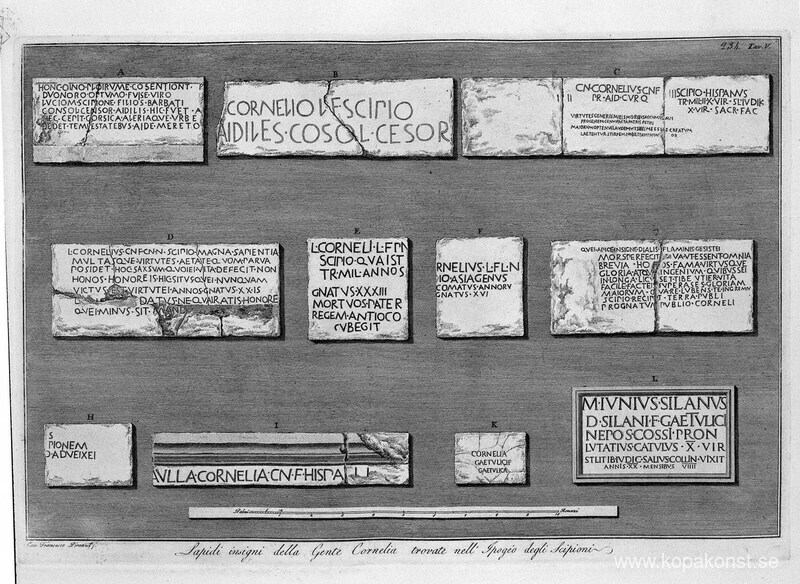 234 Tav. V.
A
HONC OINO PLOIRVME COSENTIONT
DVONORO OPTVMO FVISE VIRO
LVCIOM SCIPIONE FILIOS BARBATI
CONSOL CENSOR AIDILIS HIC FVET A
HEC CEPIT CORSICA ALERIAQVE VRBE
DEDET TEMPESTATEBVS AIDE MERETO
B
CORNELIO L F SCIPIO
AIDILES COSOL CESOR
C
CN CORNELIVS CN F
PR AID CVR Q
SCIPIO HISPANVS
TR MIL II X VIR SL IVDIK
X VIR SACR FAC
D
L CORNELIVS CN F CN N SCIPIO MAGNA SAPIENTIA
MVLTASQVE VIRTVTES AETATE QVOM PARVA
POSIDET HOC SAXSVM QVOIEI VITA DEFECIT NON
HONOS HONORE IS HIC SITVS QVEI NVNQVAM
VICTVS EST VIRTVTEI ANNOS GNATVS XX IS
DATVS NE QVAIRATIS HONORE
QVEI MINVS SIT MAND
E
L CORNELI L F P N
SCIPIO QVAIST
TR MIL ANNOS
GNATVS XXXIII
MORTVOS PATER
REGEM ANTIOCO
SVBEGIT
F
RNELIVS L F L N
IO ASIAGENVS
COMATVS ANNORV
GNATVS XVI
QVEI APICE INSIGNE DIALIS FLAMINIS GESISTEI
MORS PERFECIT TVA VT ESSENT OMNIA
BREVIA HONOS FAMA VIRTVSQVE
GLORIA ATQVE INGENIVM QVIBVS SEI
IN LONGA LICVISET TIBE VTIER VITA
FACILE FACTEIS SVPERASES GLORIAM
MAIORVM QVARE LVBENS TE IN GREMIV
SCIPIO RECIPIT TERRA PVBLI
PROGNATVM PVBLIO CORNELI
H
S
PIONEM
O ADVEIXEI
I
AVLLA CORNELIA CN F HISPALLI
K
CORNELIA
GAETVLICI F
GAETVLICA
L
M·IVNIVS·SILANVS
D·SILANI·F·GAETVLICI
NEPOS·COSSI·PRON
LVTATIVS·CATVLVS·X·VIR
STLITIB·IVDIC·SALIVS·COLLIN·VIXIT
ANNIS·XX·MENSIBVS VIIII
Romani
Cav. Francesco Piranesi f.
Lapidi insigni della Gente Cornelia trovate nell' Ipogeo degli Scipioni
www.kopakonst.se